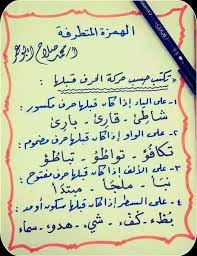 الهمزة المتطرفة
أ/ محمد صلاح
* تكتب حسب حركة الحرف قبلها:
١- على الياء إذا كان قبلها حرف مكسور:
شاطِئ - قارِئ - بارِئ
٢- على الواو إذا كان قبلها حرف مضموم:
تكافُؤ - تواطُؤ - تباطُؤ
٣- على الألف إذا كان قبلها حرف مفتوح:
نبَأ - ملجَأ - مبتدَأ
٤- على السطر إذا كان قبلها سكون أو مد:
بُطْء - كُفْء - شيء - هدوء - سماء